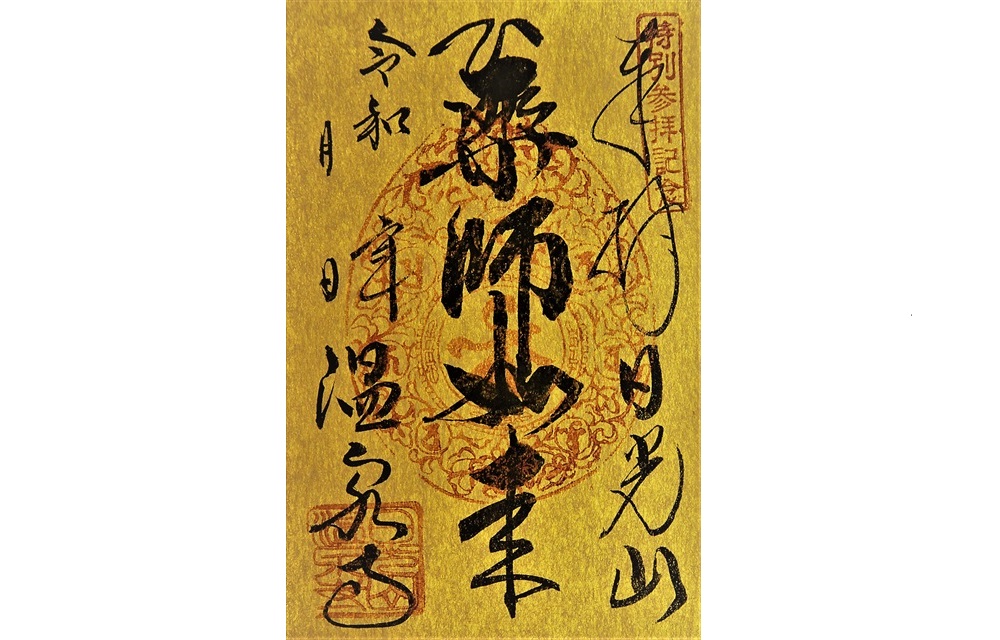 特別参拝記念
奉拝 日光山
薬師如来
令和 年
月 日
温泉寺